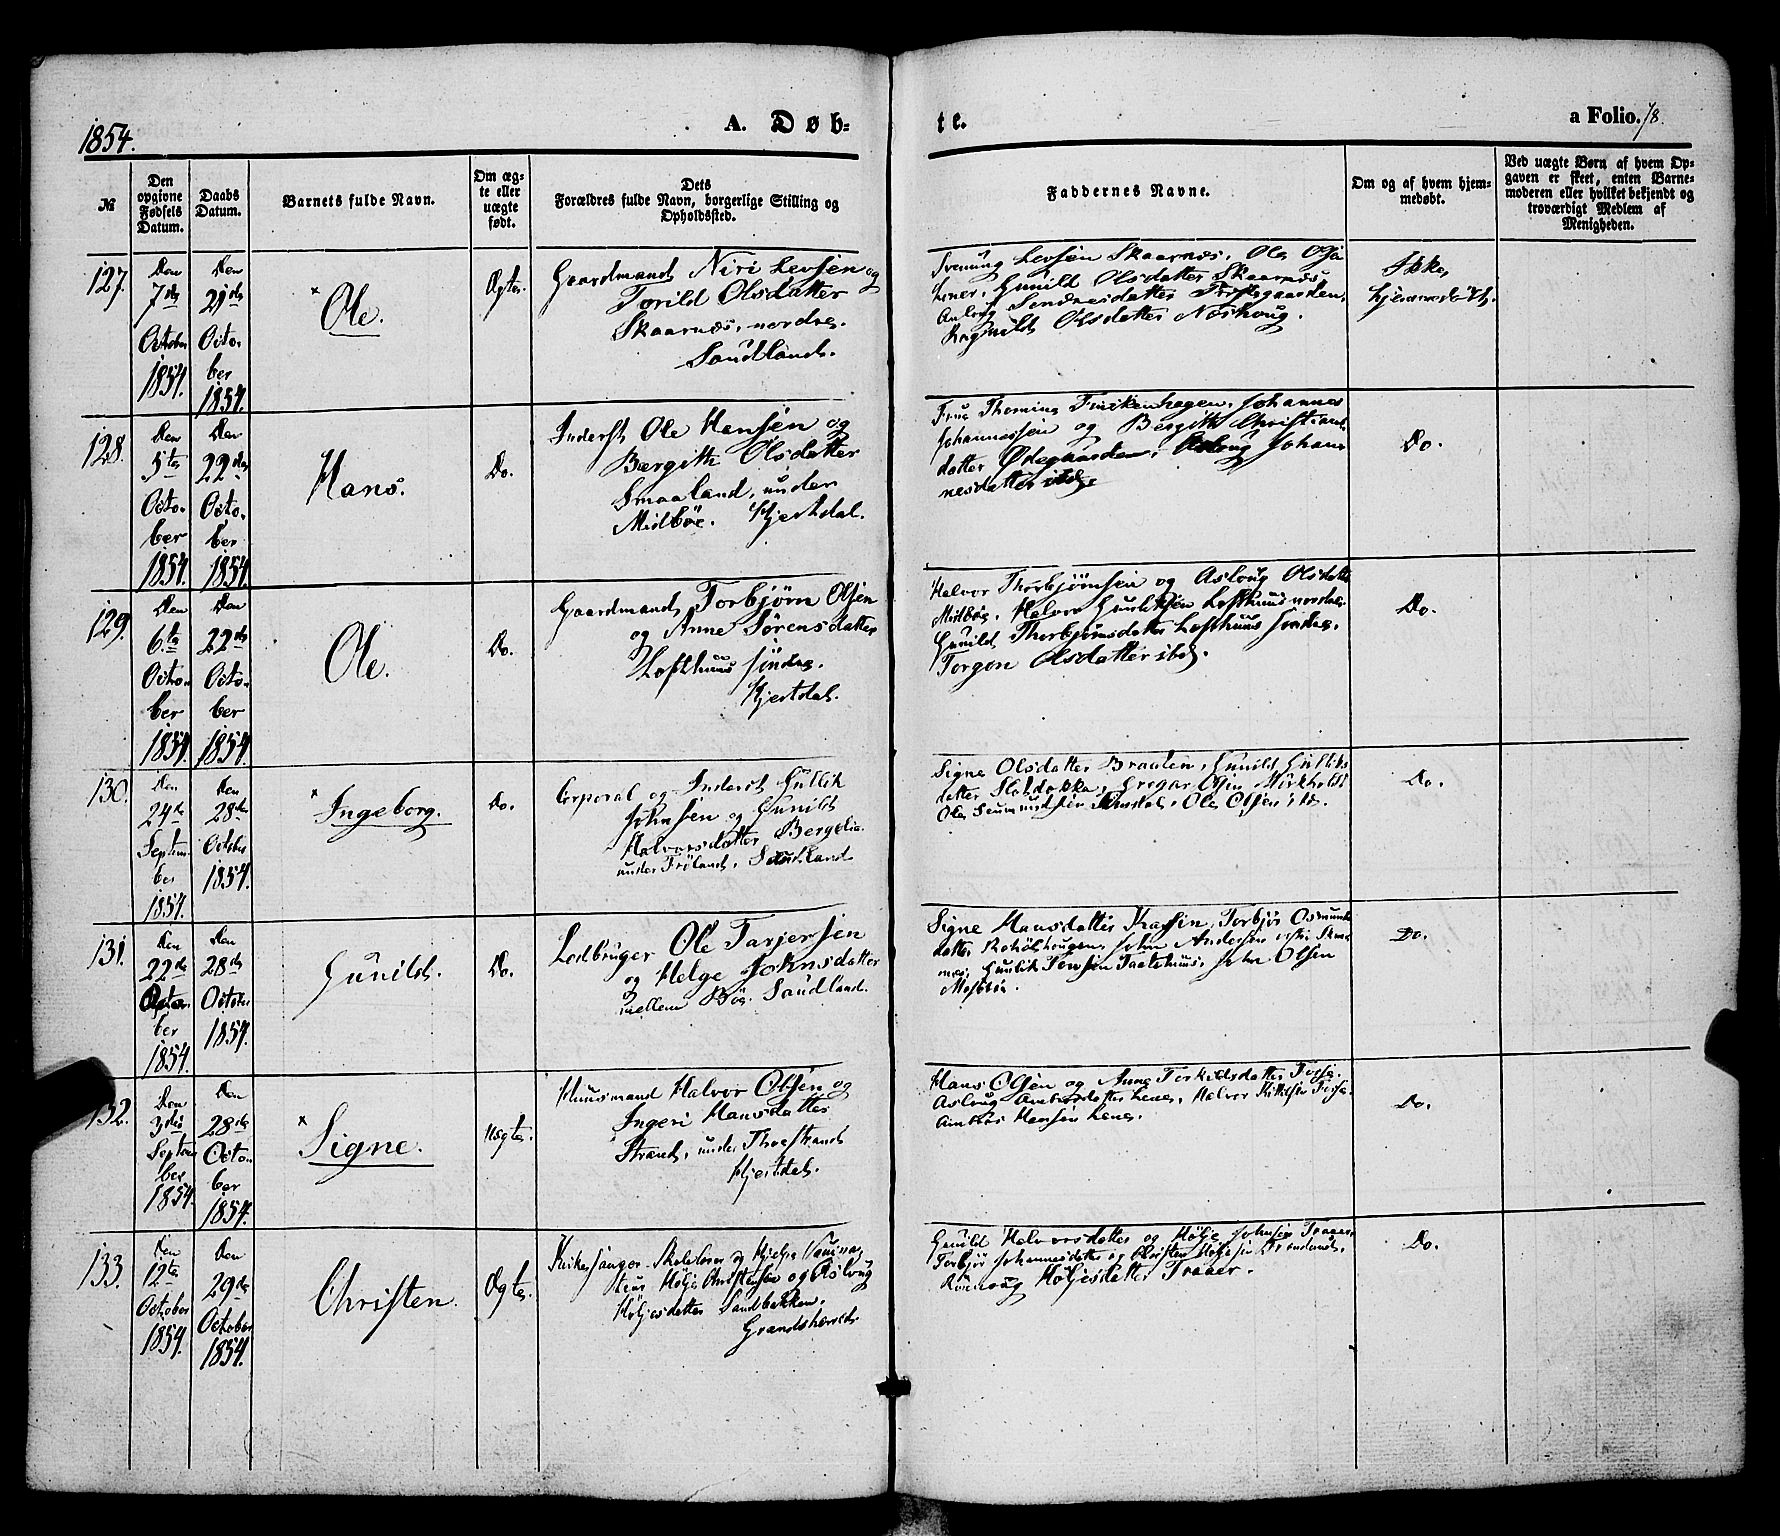 1854.
A. Døb-
te.
a Folio. 78.
№
Den opgivne Fødsels Datum.
Daabs Datum.
Barnets fulde Navn.
Om ægte eller uægte født.
Dets Forældres fulde Navn, borgerlige Stilling og Opholdssted.
Faddernes Navne.
Om og af hvem hjemmedøbt.
Ved uægte Børn af hvem Opgaven er skeet, enten Barnemoderen eller hvilket bekjendt og troværdigt Medlem af Menigheden.
127.
Den 7de October 1854.
Den 21de October 1854.
× Ole.
Ægte.
Gaardmand Niri Levsen og
Torild Olsdatter
Skaarnæs, nordre.
Saudland.
Svenung Levsen Skaarnæs, Ole Olsen
Gunild Olsdatter Skaarnæs,
Asloug
Ragnild Olsdatter
Ikke
hjemmedøbt.
128.
Den 5te October 1854.
Den 22de October 1854.
Hans.
Do.
Inderst Ole Hansen og
Bergith Olsdatter
Smaaland, under
Midbøe. Hjertdal.
Frue Thomine Johannes
Johannessen og Bergith Christians
datter Ødegaarden, Asloug Johan
nesdatter ibd.
Do.
129.
Den 6te October 1854.
Den 22de October 1854.
Ole.
Do.
Gaardmand Torbjørn Olsen
og Anne Sørensdatter
Lofthuus søndre.
Hjertdal.
Halvor Thorbjørnsen og Asloug Olsdatter
Midbøe, Halvor Gunliksen Lofthuus nordre.
Gunild Thorbjørnsdatter Lofthuus søndre.
Torgon Olsdatter ibd.
Do.
130.
Den 24de September 1854.
Den 28de October 1854.
× Ingeborg.
Do.
Corporal og Inderst Gullik
Johnsen og Gunild
Halvorsdatter Bergelie.
under Frøland, Saudland
Signe Olsdatter Braaten, Gunild Gulliks
datter Slaadakka, Gregar Olsen
Ole Ole Olsen ibd.
Do.
131.
Den 22de October 1854.
Den 28de October 1854.
Gunild.
Do.
Ledbruger Ole Tarjersen
og Helge Johnsdatter
mellem Bøe. Saudland.
Signe Hansdatter Torbjør Osmunds
datter John Andersen
John Olsen
Do.
132.
Den 3die September 1854.
Den 28de October 1854.
× Signe.
Uægte.
Huusmand Halvor Olsen og
Ingeri Hansdatter
Strand, under Thvestrand
Hjertdal.
Hans Olsen og Anne Terkildsdatter
Aslaug Ambors­datter Lene, Halvor Kittilsen
Ambors Hansen Lene.
Do.
133.
Den 12te October 1854.
Den 29de October 1854.
Christen.
Ægte.
Kirkesanger Skolelærer og
Høljе Christensen og Røloug
Høljesdatter Sandbakken.
Grandsherred.
Gunild Halvorsdatter og Hølje Johnsen Traaer.
Torbjør Johannesdatter og Christen Høljesen
Rønnoug Høljesdatter Traaer.
Do.